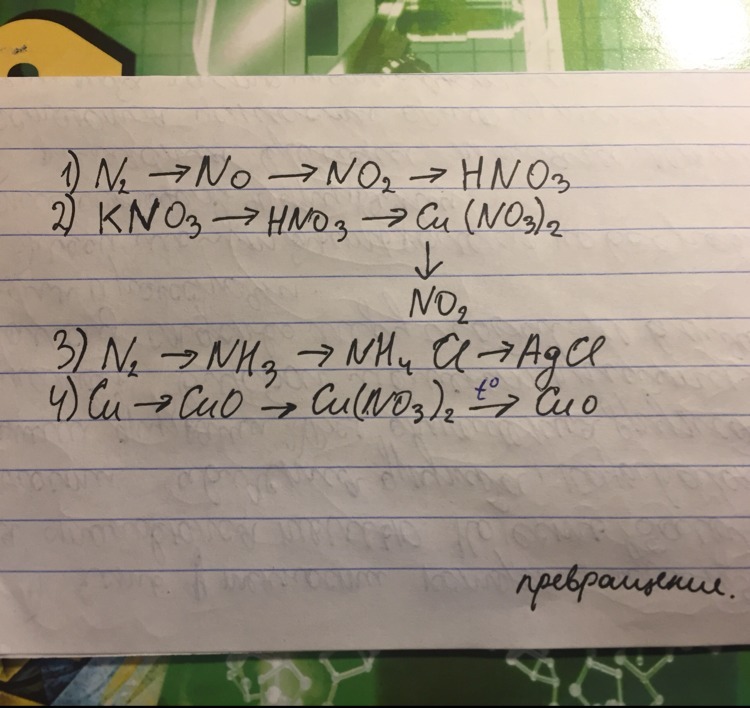 1) N₂ → NO → NO₂ → HNO₃
2) KNO₃ → HNO₃ → Cu(NO₃)₂
↓
NO₂
3) N₂ → NH₃ → NH₄Cl → AgCl
4) Cu → CuO → Cu(NO₃)₂ t° → CuO
превращение.